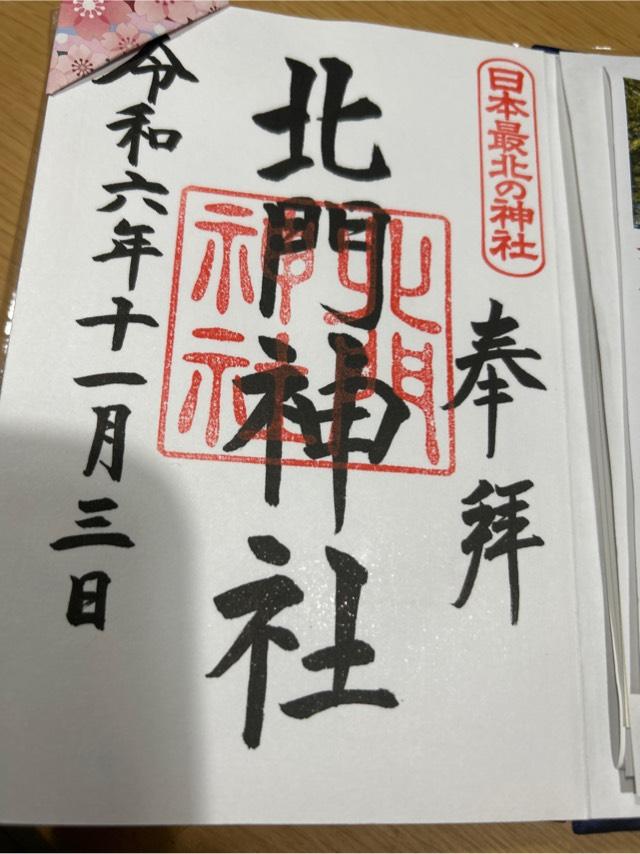 日本最北の神社
奉拝
北門神社
北門
神社
令和六年十一月三日